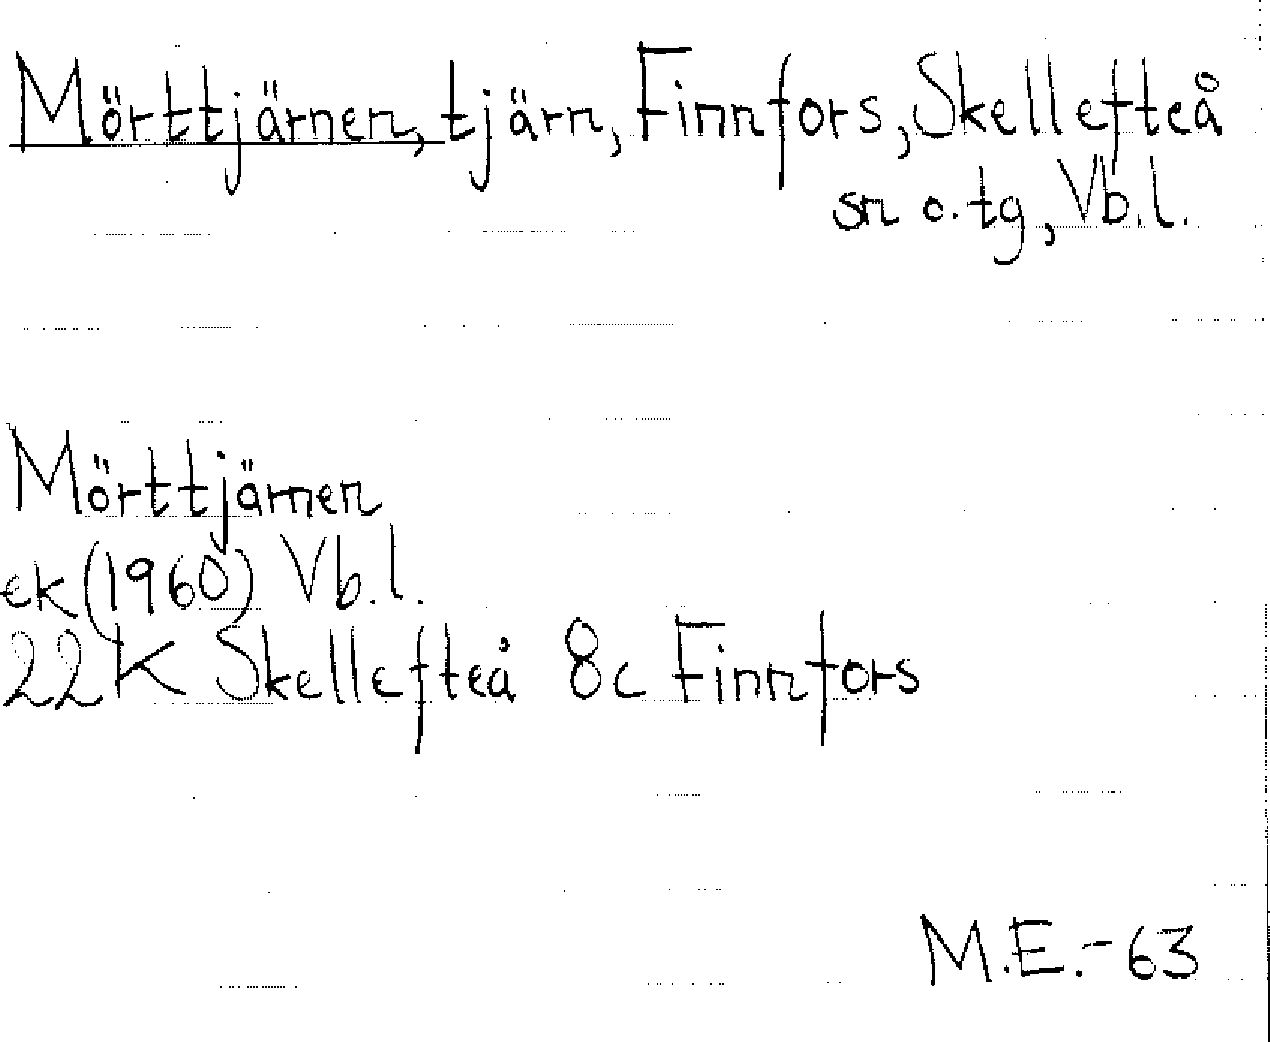 Mörttjärnen, tjärn, Finnfors, Skellefteå
sn o. tg, Vb.l.
Mörttjärnen
ek (1960) Vb.l.
22K Skellefteå 8c Finnfors
M.E.-63